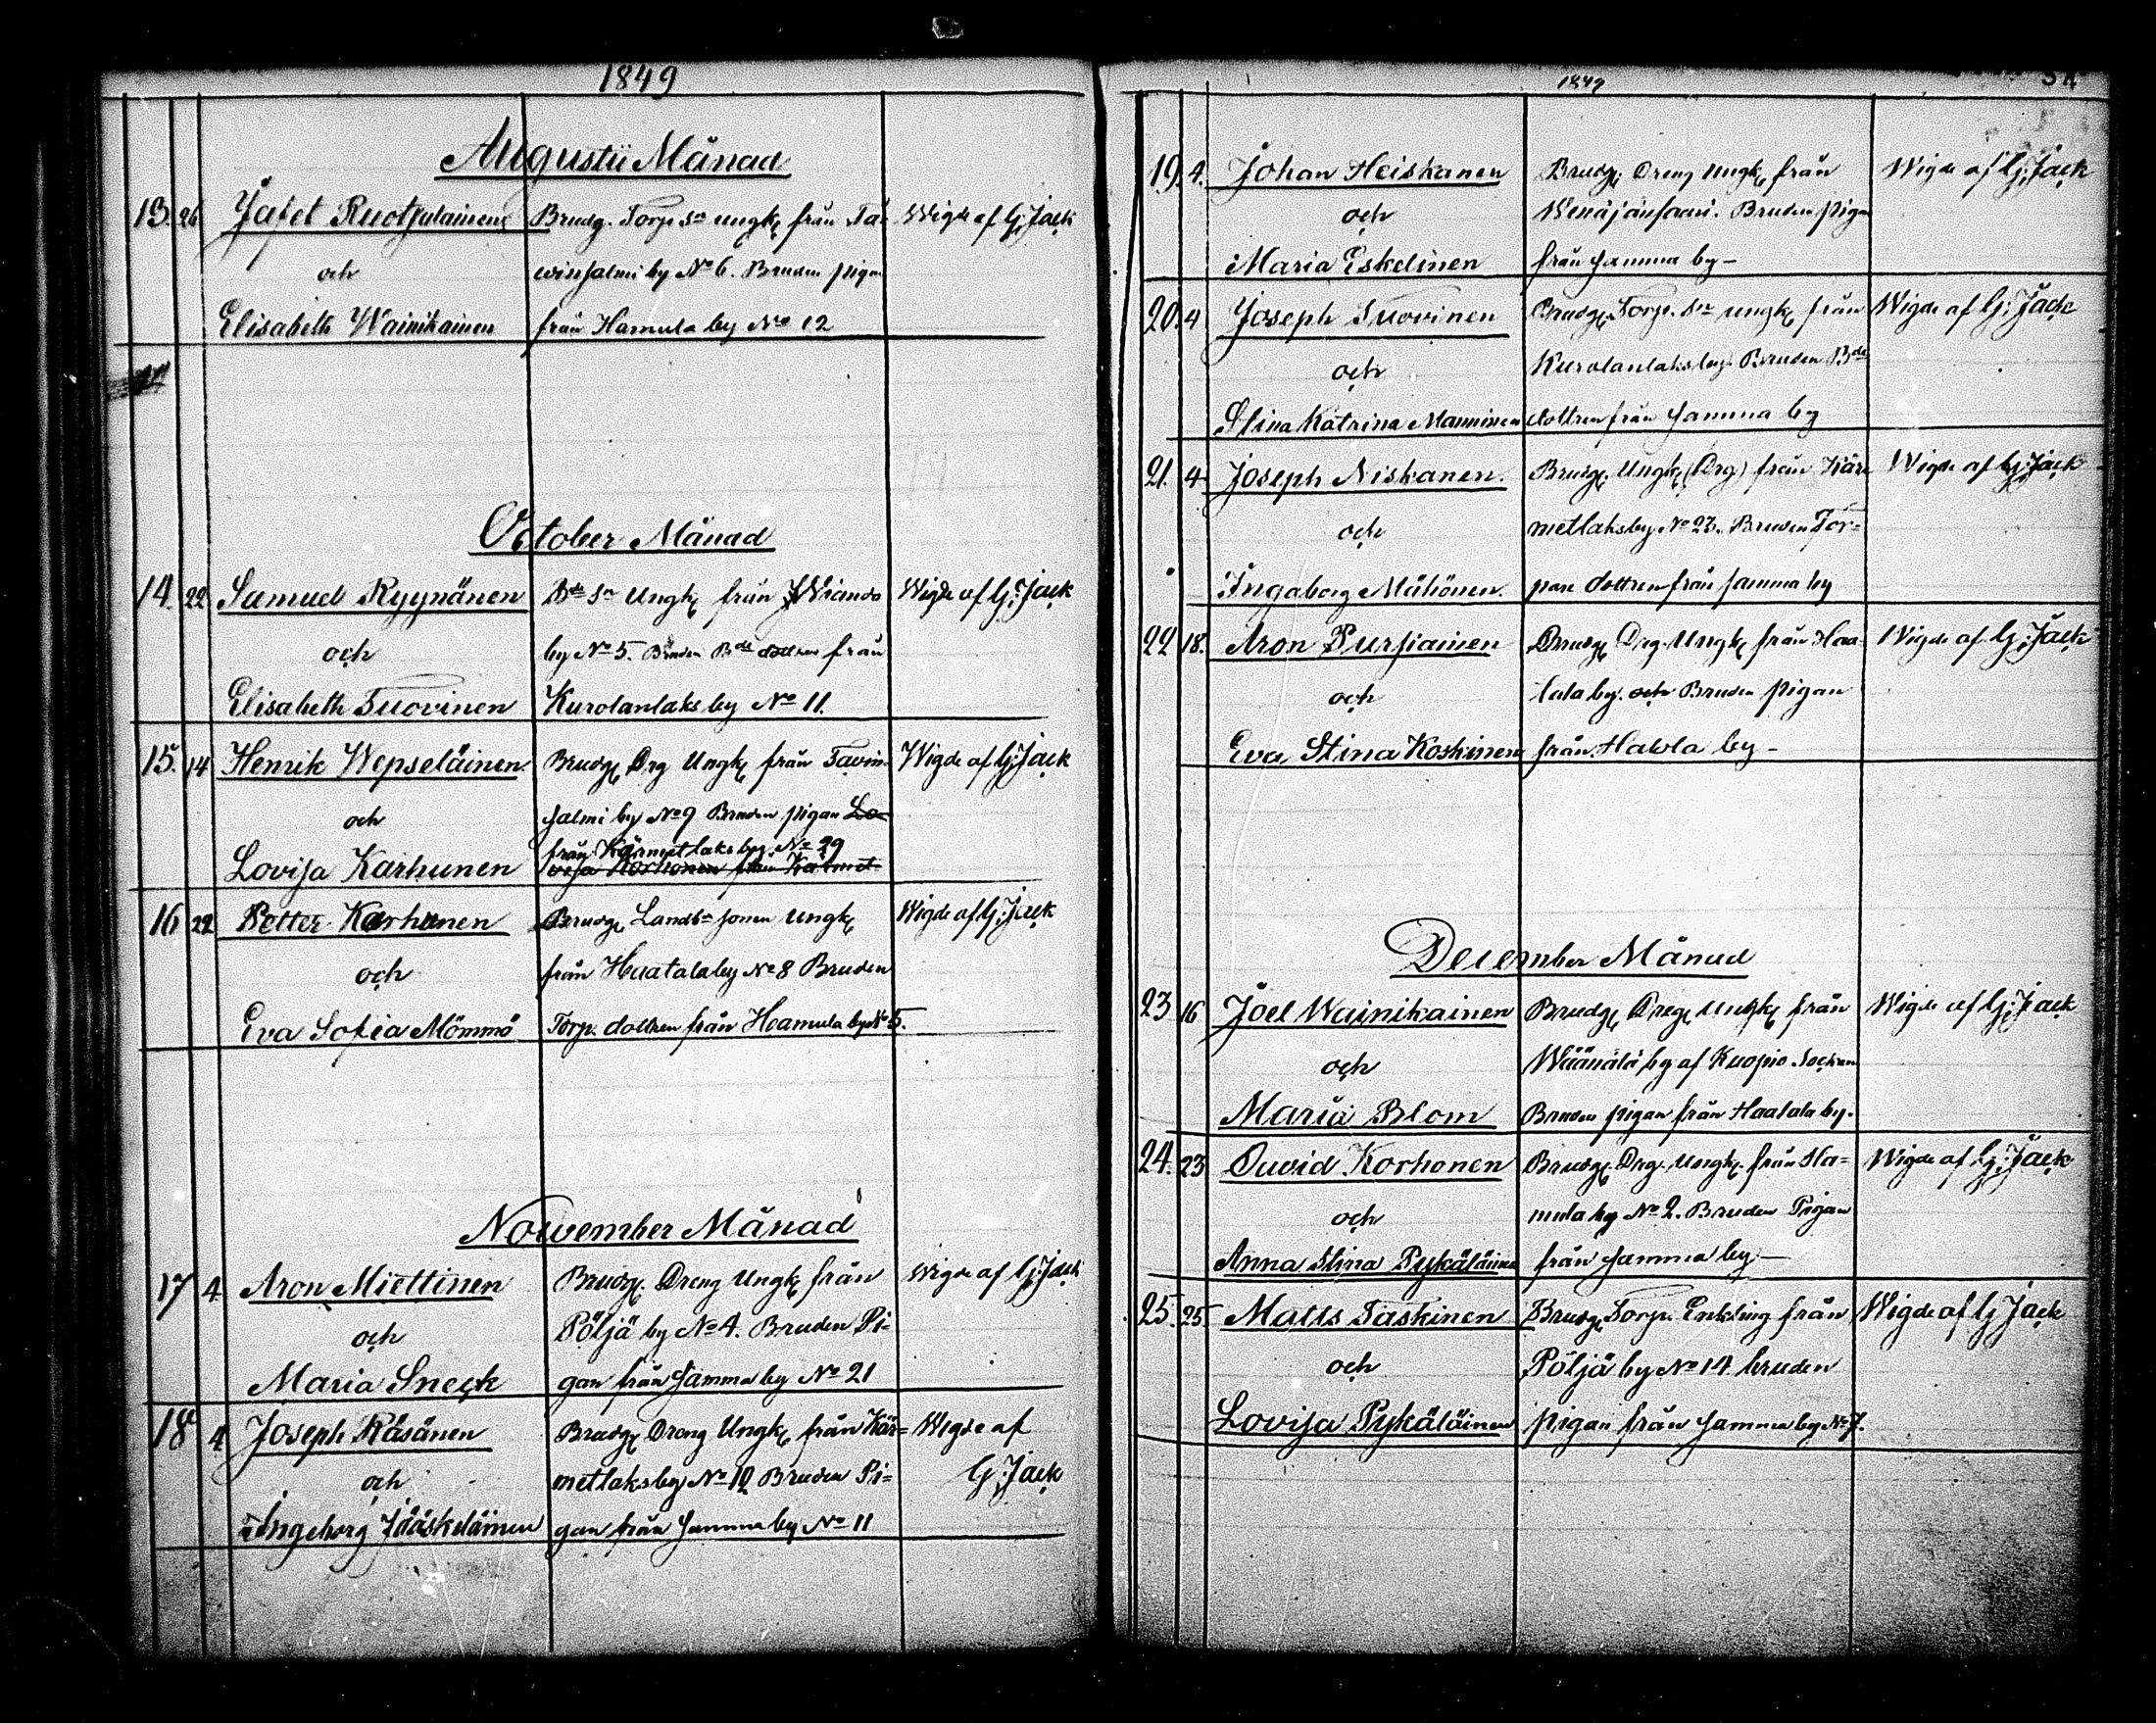 1849
Augustii Månad
13. 26 Jafet Ruotsulainen Brudg. Torp. sn ungk. från Ta- Wigde af G: Jack
och winsalmi by No 6. Bruden pigan
Elisabeth Wainikainen från Hamula by No 12
October Månad
14. 22 Samuel Ryynänen Bde sn Ungk. från Wianda Wigde af G: Jack
och by No 5. Bruden Bde dottren från
Elisabeth Tuovinen Kurolanlaks by No 11.
15. 14 Henrik Wepseläinen Brudg. Drg Ungk. från Tavin- Wigde af G: Jack
och salmi by No 9 Bruden pigan Lo-
från Kärmetlaks by. No 29
Lovisa Karhunen visa Korhonen från Kärmet-
16 22 Petter Karhunen Brudg. Landb. sonen Ungk. Wigde af G: Jack
och från Haatala by No 8 Bruden
Eva Sofia Mömmö Torp. dottren från Hamula by No 5.
November Månad
17 4. Aron Miettinen Brudg. Dreng Ungk. från Wigde af G: Jack
och Pöljä by No 4. Bruden Pi-
Maria Sneck gan från samma by No 21
18 4. Joseph Räsänen Brudg. Dreng Ungk. från Kär- Wigde af
och metlaks by No 10 Bruden Pi- G: Jack
Ingeborg Jääskeläinen gan från samma by No 11
1849
19. 4. Johan Heiskanen Brudg. Dreng Ungk. från Wigde af G: Jack
och Wenäjänsaari. Bruden pigan
Maria Eskelinen från samma by -
20. 4 Joseph Tuovinen Brudg. Torp. sn ungk. från Wigde af G: Jack
och Kurolanlaks by. Bruden Bde
Stina Katrina Manninen dottren från samma by
21. 4 Joseph Niskanen. Brudg. Ungk. (Drg) från Kär- Wigde af G: Jack
och metlaks by No 23. Bruden Tor-
Ingeborg Mähönen. pare dottren från samma by
22 18. Aron Pursiainen Brudg. Drg. Ungk. från Haa- Wigde af G: Jack
och tala by. och Bruden pigan
Eva Stina Koskinen från Hakla by -
December Månad
23 16 Joel Wainikainen Brudg. Dreg. Ungk. från Wigde af G: Jack
och Wäänälä by af Kuopio Socken
Maria Blom Bruden pigan från Haatala by.
24. 23 Ouvid Korhonen Brudg. Drg. Ungk. från Ha- Wigde af G: Jack
och mula by No 2. Bruden Pigan
Anna Stina Pykäläinen från samma by -
25. 25. Matts Taskinen Brudg. Torp. Enkling från Wigde af G Jack
och Pöljä by No 14. bruden
Lovisa Pykäläinen pigan från samma by No 7.